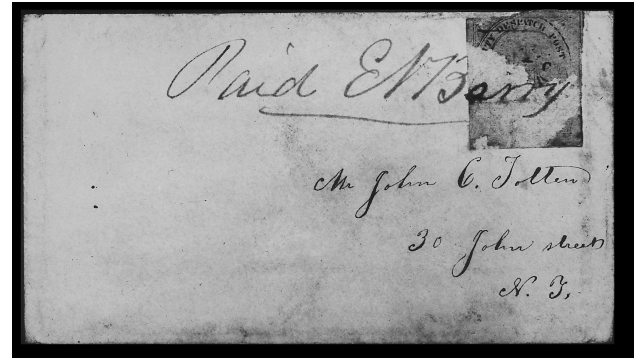 CITY DESPATCH POST
Paid E N Barry
Mr John C. Totten
30 John street
N. Y.